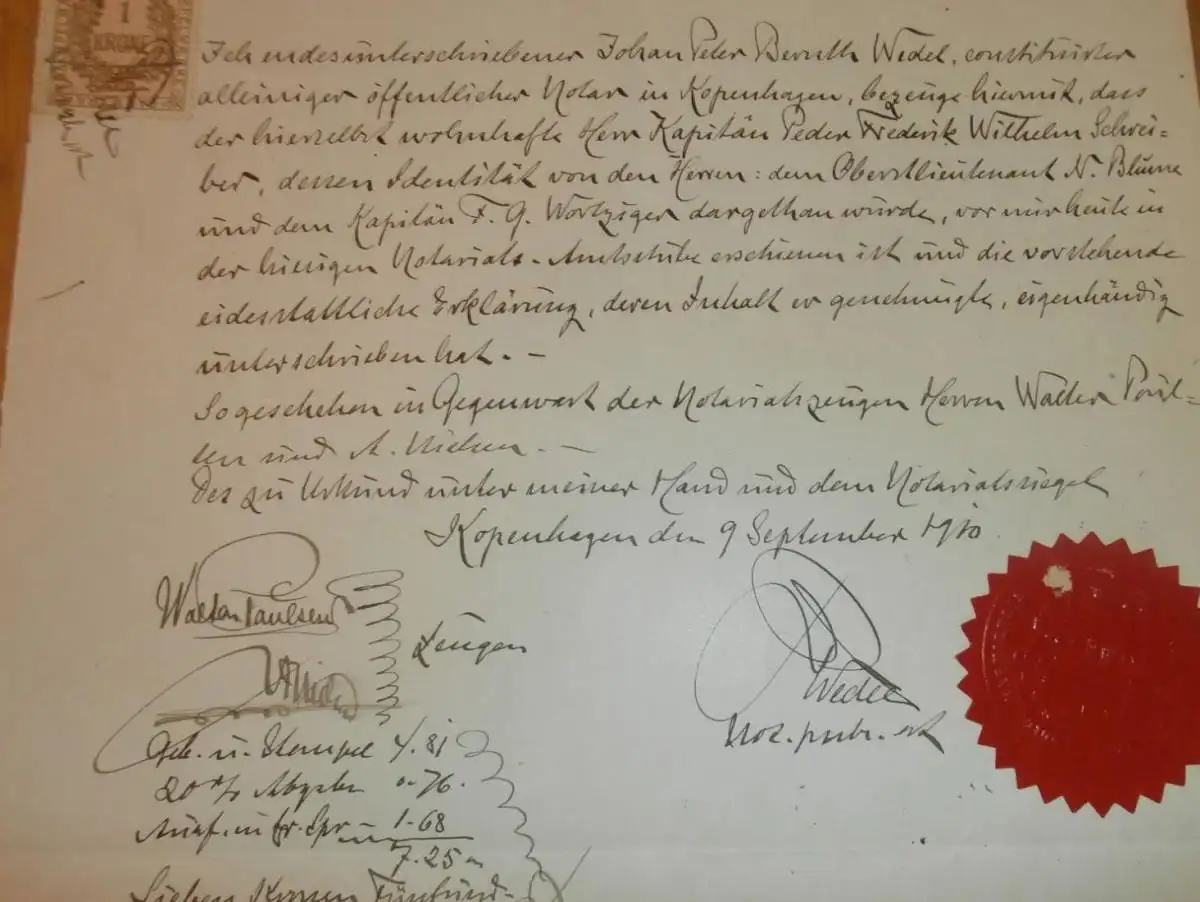 1
KRONE
Ich endesunterschriebener Johan Peter Bernth Wedel, constituirter
alleiniger öffentlicher Notar in Kopenhagen, bezeuge hiermit, dass
der hierselbst wohnhafte Herr Kapitän Peder Frederik Wilhelm Schrei-
ber, dessen Identität von den Herren: dem Oberstlieutenant N. Blume
und dem Kapitän F. G. Wortziger dargethan wurde, vor mir heute in
der hiesigen Notariats-Amtsstube erschienen ist und die vorstehende
eidesstattliche Erklärung, deren Inhalt er genehmigte, eigenhändig
unterschrieben hat. -
So geschehen in Gegenwart der Notariatszeugen Herren Walter Poul-
sen und A. Nielsen. -
Des zu Urkund unter meiner Hand und dem Notariatssiegel
Kopenhagen den 9 September 1910
Walter Paulsen
Zeugen
Wedel
Not. publ. 
Geb. u. Stempel 4.81
20 % Abgaben 0-76.
Ausf. in fr. Spr - 1-68
7.25
Sieben Kronen Fünfund-